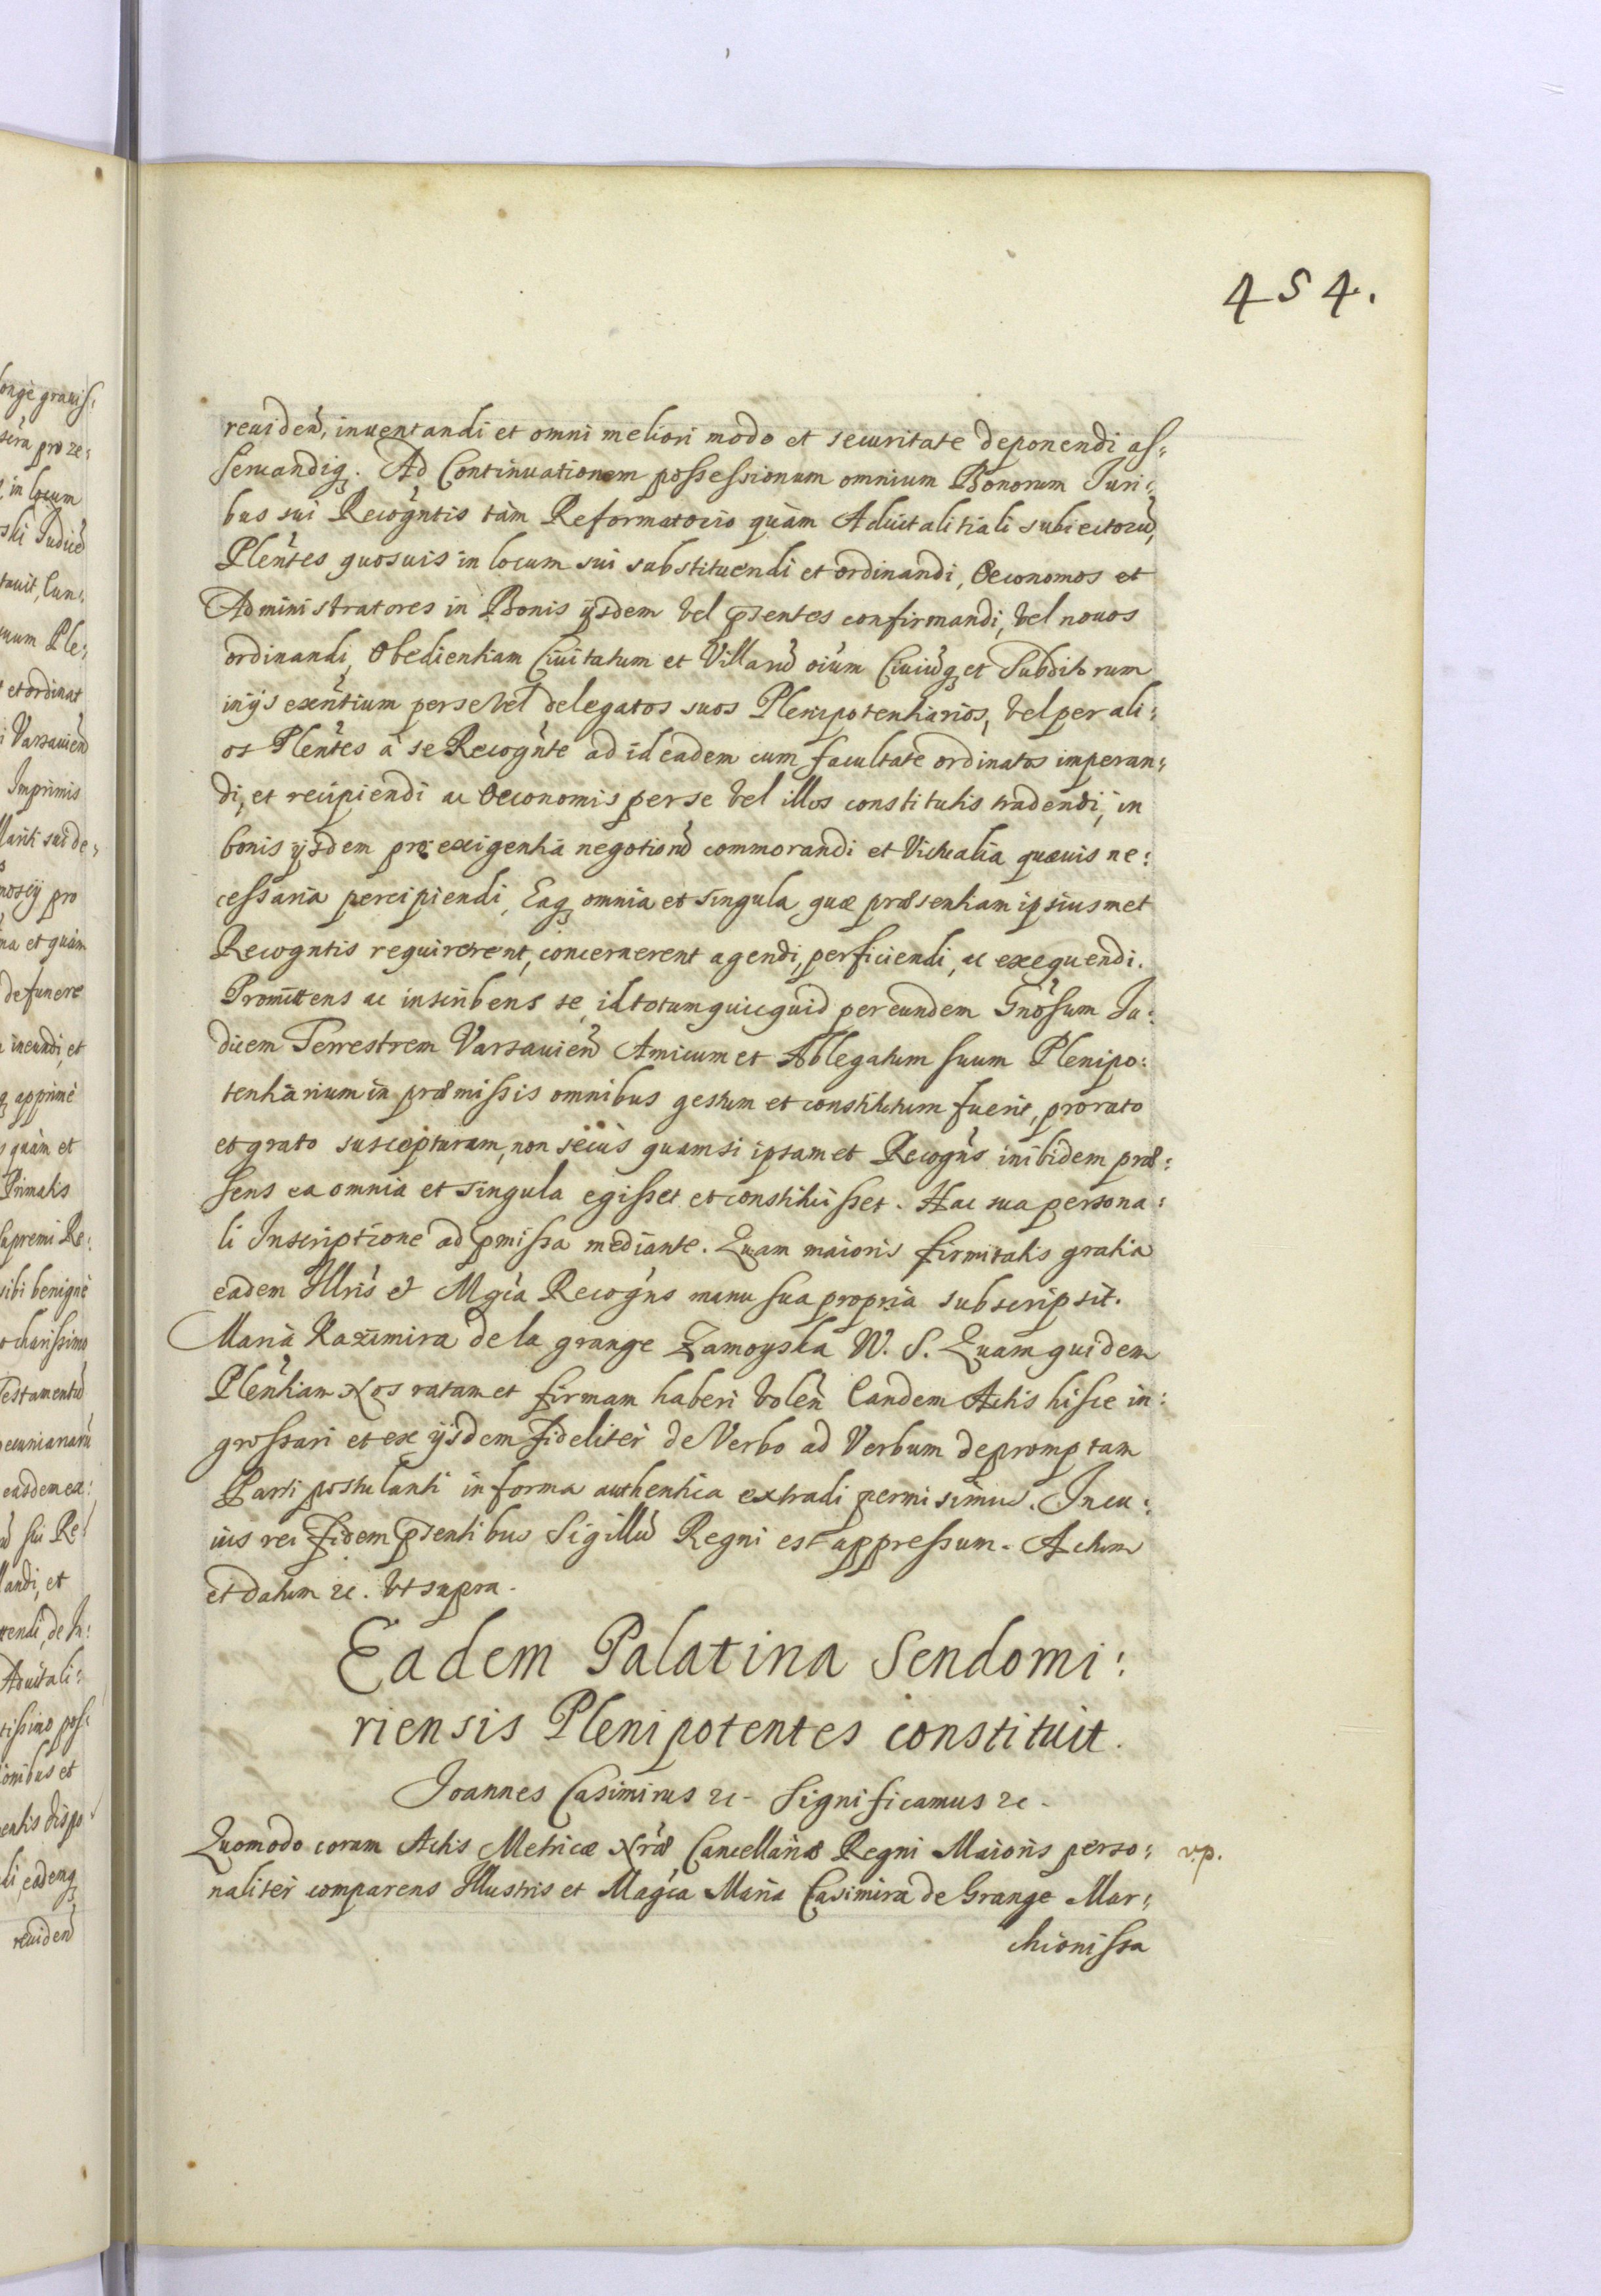 454.
reuideñ, inuentandi et omni meliori modo et securitate deponendi as:
seruandiq₃. Ad Continuationem possessionum omnium Bonorum Juri:
bus sui Recogñtis tàm Reformatorio quàm Aduitalitiali subiectorũ,
Pleñtes quosuis in locum sui substituendi et ordinandi, Oeconomos et
Administratores in Bonis ijsdem vel pſentes confirmandi, vel nouos
ordinandi, Obedientiam Ciuitatum et Villarũ oiũm Ciuiũq₃ et Subditorum
in ijs exeñtium per se vel delegatos suos Plenipotentiarios, vel per ali:
os Pleñtes à se Recogñte ad id eadem cum facultate ordinatos imperan:
di, et recipiendi ac Oeconomis per se vel illos constitutis tradendi, in
bonis ijsdem pro exigentia negotiorũ commorandi et Victualia quæuis ne:
cessaria percipiendi, Eaq₃ omnia et singula quæ præsentiam ipsiusmet
Recogntis requirerent, concernerent agendi, perficiendi, ac exequendi.
Promittens ac inscribens se id totum quicquid per eundem Gñosum Ju:
dicem Terrestrem Varsauieñ Amicum et Ablegatum suum Plenipo:
tentiarium in præmissis omnibus gestum et constitutum fuerit, pro rato
et grato suscepturam, non secùs quam si ipsamet Recogñs inibidem præ:
sens ea omnia et singula egisset et constituisset. Hac sua persona:
li Inscriptione ad pmissa mediante. Quam maioris firmitatis gratia
eadem Illris et Mgca Recogñs manu sua propria subscripsit.
Maria Kazimira de la grange Zamoyska W. S. Quam quidem
Pleñtiam Nos ratam et firmam haberi voleñ Eandem Actis hisce in:
grossari et ex ijsdem fideliter de Verbo ad Verbum depromptam
Parti postulanti in forma authentica extradi permisimus. In cu:
ius rei fidem pſentibus Sigillũ Regni est appressum. Actum
et datum ꝛc. Vt supra.
Eadem Palatina Sendomi:
riensis Plenipotentes constituit.
Joannes Casimirus ꝛc. Significamus ꝛc.
Quomodo coram Actis Metricæ Nræ Cancellariæ Regni Maioris perso: v.p.
naliter comparens Illustris et Magca Maria Casimira de Grange Mar:
chionissa